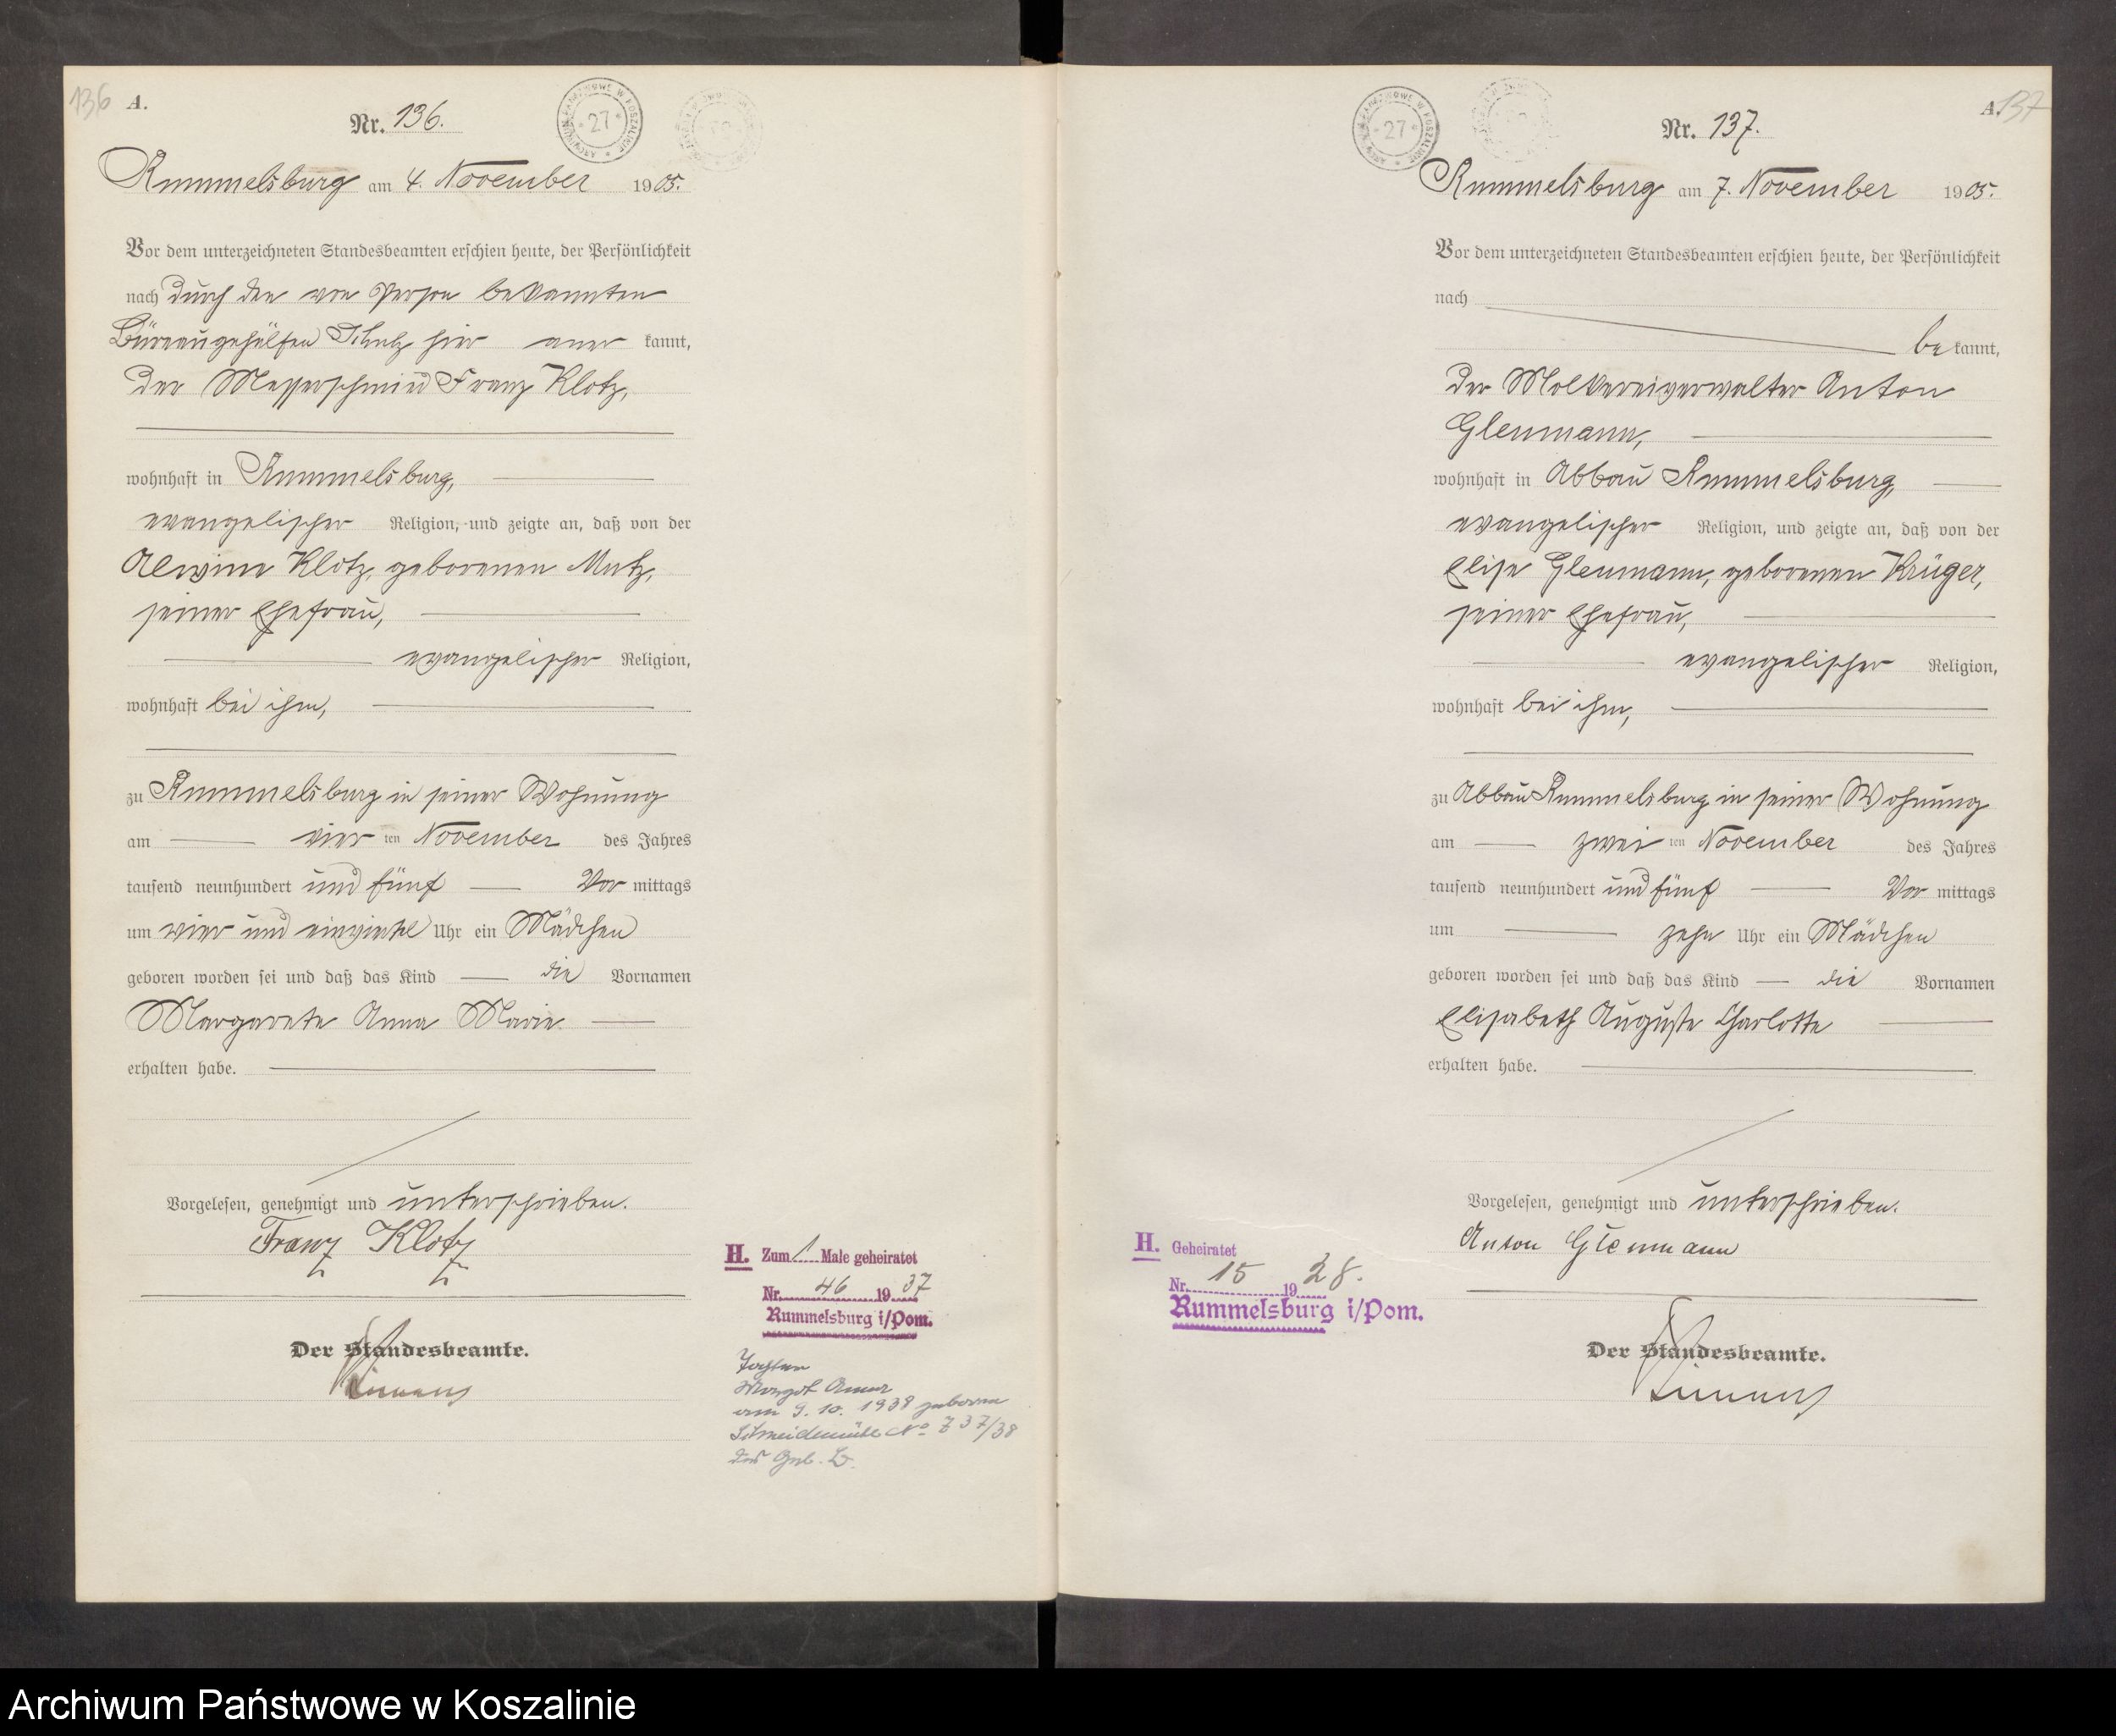 136 A.
Nr. 136.
ARCHIWUM PAŃSTWOWE W KOSZALINIE * 27 *
Rummelsburg am 4. November 1905.
Vor dem unterzeichneten Standesbeamten erschien heute, der Persönlichkeit
nach durch den von Person bekannten
Büreaugehülfen Schulz hier aner kannt,
der Messerschmied Franz Klotz,
wohnhaft in Rummelsburg,
evangelischer Religion, und zeigte an, daß von der
Alwine Klotz, geborenen Mutz,
seiner Ehefrau,
evangelischer Religion,
wohnhaft bei ihm,
zu Rummelsburg in seiner Wohnung
am vier ten November des Jahres
tausend neunhundert und fünf Vor mittags
um vier und einviertel Uhr ein Mädchen
geboren worden sei und daß das Kind die Vornamen
Margarete Anna Marie
erhalten habe.
Vorgelesen, genehmigt und unterschrieben.
Franz Klotz
Der Standesbeamte.
H. Zum 1 Male geheiratet
Nr. 46 1937
Rummelsburg i/Pom.
Tochter
Margot
am 9. 10. 1938 geboren
Schneidemühl No 737/38
A. 137
Nr. 137.
ARCHIWUM PAŃSTWOWE W KOSZALINIE * 27 *
Rummelsburg am 7. November 1905.
Vor dem unterzeichneten Standesbeamten erschien heute, der Persönlichkeit
nach
be kannt,
der Molkereiverwalter Anton
Glenmann,
wohnhaft in Abbau Rummelsburg,
evangelischer Religion, und zeigte an, daß von der
Elise Glenmann, geborenen Krüger,
seiner Ehefrau,
evangelischer Religion,
wohnhaft bei ihm,
zu Abbau Rummelsburg in seiner Wohnung
am zwei ten November des Jahres
tausend neunhundert und fünf Vor mittags
um zehn Uhr ein Mädchen
geboren worden sei und daß das Kind die Vornamen
Elisabeth Auguste Charlotte
erhalten habe.
Vorgelesen, genehmigt und unterschrieben.
Anton Glenmann
Der Standesbeamte.
H. Geheiratet
Nr. 15 1928.
Rummelsburg i/Pom.
Archiwum Państwowe w Koszalinie